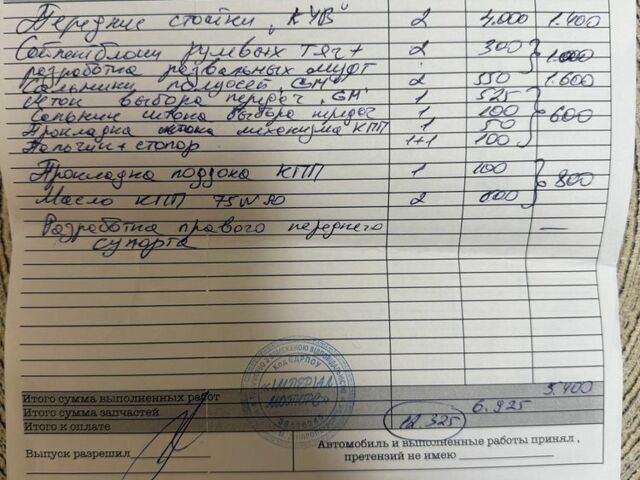 Передние стойки „КУВ" 2 4.000 1.400
Сайлентблоки рулевых тяг + 2 300 1.000
разработка развальных муфт
Сальники полуосей „GM" 2 550 1.600
Шток выбора передач „GM" 1 525
Сальник штока выбора передач 1 100 600
Прокладка штока механизма КПП 1 50
стопор 1+1 100
Прокладка поддона КПП 1 100 800
Масло КПП 75W90 2
Разработка правого переднего —
супорта
Код ЄДРПОУ
Итого сумма выполненных работ 5.400
Итого сумма запчастей 6.925
Итого к оплате 12 325
Выпуск разрешил
Автомобиль и выполненные работы принял ,
претензий не имею